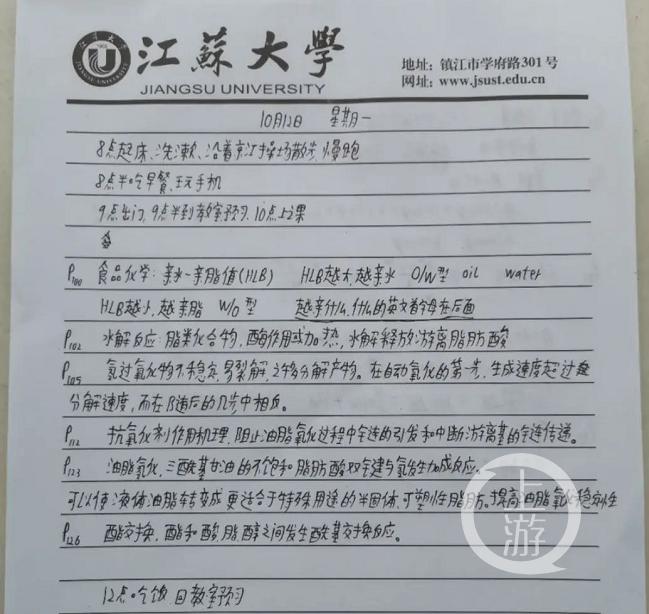 江蘇大學
JIANGSU UNIVERSITY
地址: 镇江市学府路301号
网址: www.jsust.edu.cn
10月12日 星期一
8点起床、洗漱、沿着京江操场散步,慢跑
8点半吃早餐、玩手机
9点出门,9点半到教室预习,10点上课
P100 食品化学: 亲水-亲脂值(HLB) HLB越大,越亲水 O/W型 oil water
HLB越小,越亲脂 W/O型 越亲什么,什么的英文首字母在后面
P102 水解反应: 脂类化合物,酶作用或加热,水解释放游离脂肪酸
P105 氢过氧化物不稳定,易裂解,产生多分解产物。在自动氧化的第一步,生成速度超过
分解速度,而在随后的几步中相反。
P112 抗氧化剂作用机理,阻止油脂氧化过程中链的引发和中断游离基的链传递。
P123 油脂氢化,三酰基甘油的不饱和脂肪酸双键与氢发生加成反应。
可以使液体油脂转变成更适合于特殊用途的半固体,可塑性脂肪。提高油脂氧化稳定性
P126 酯交换,酯和酸,脂,醇之间发生酰基交换反应。
12点吃饭 回教室预习
上游